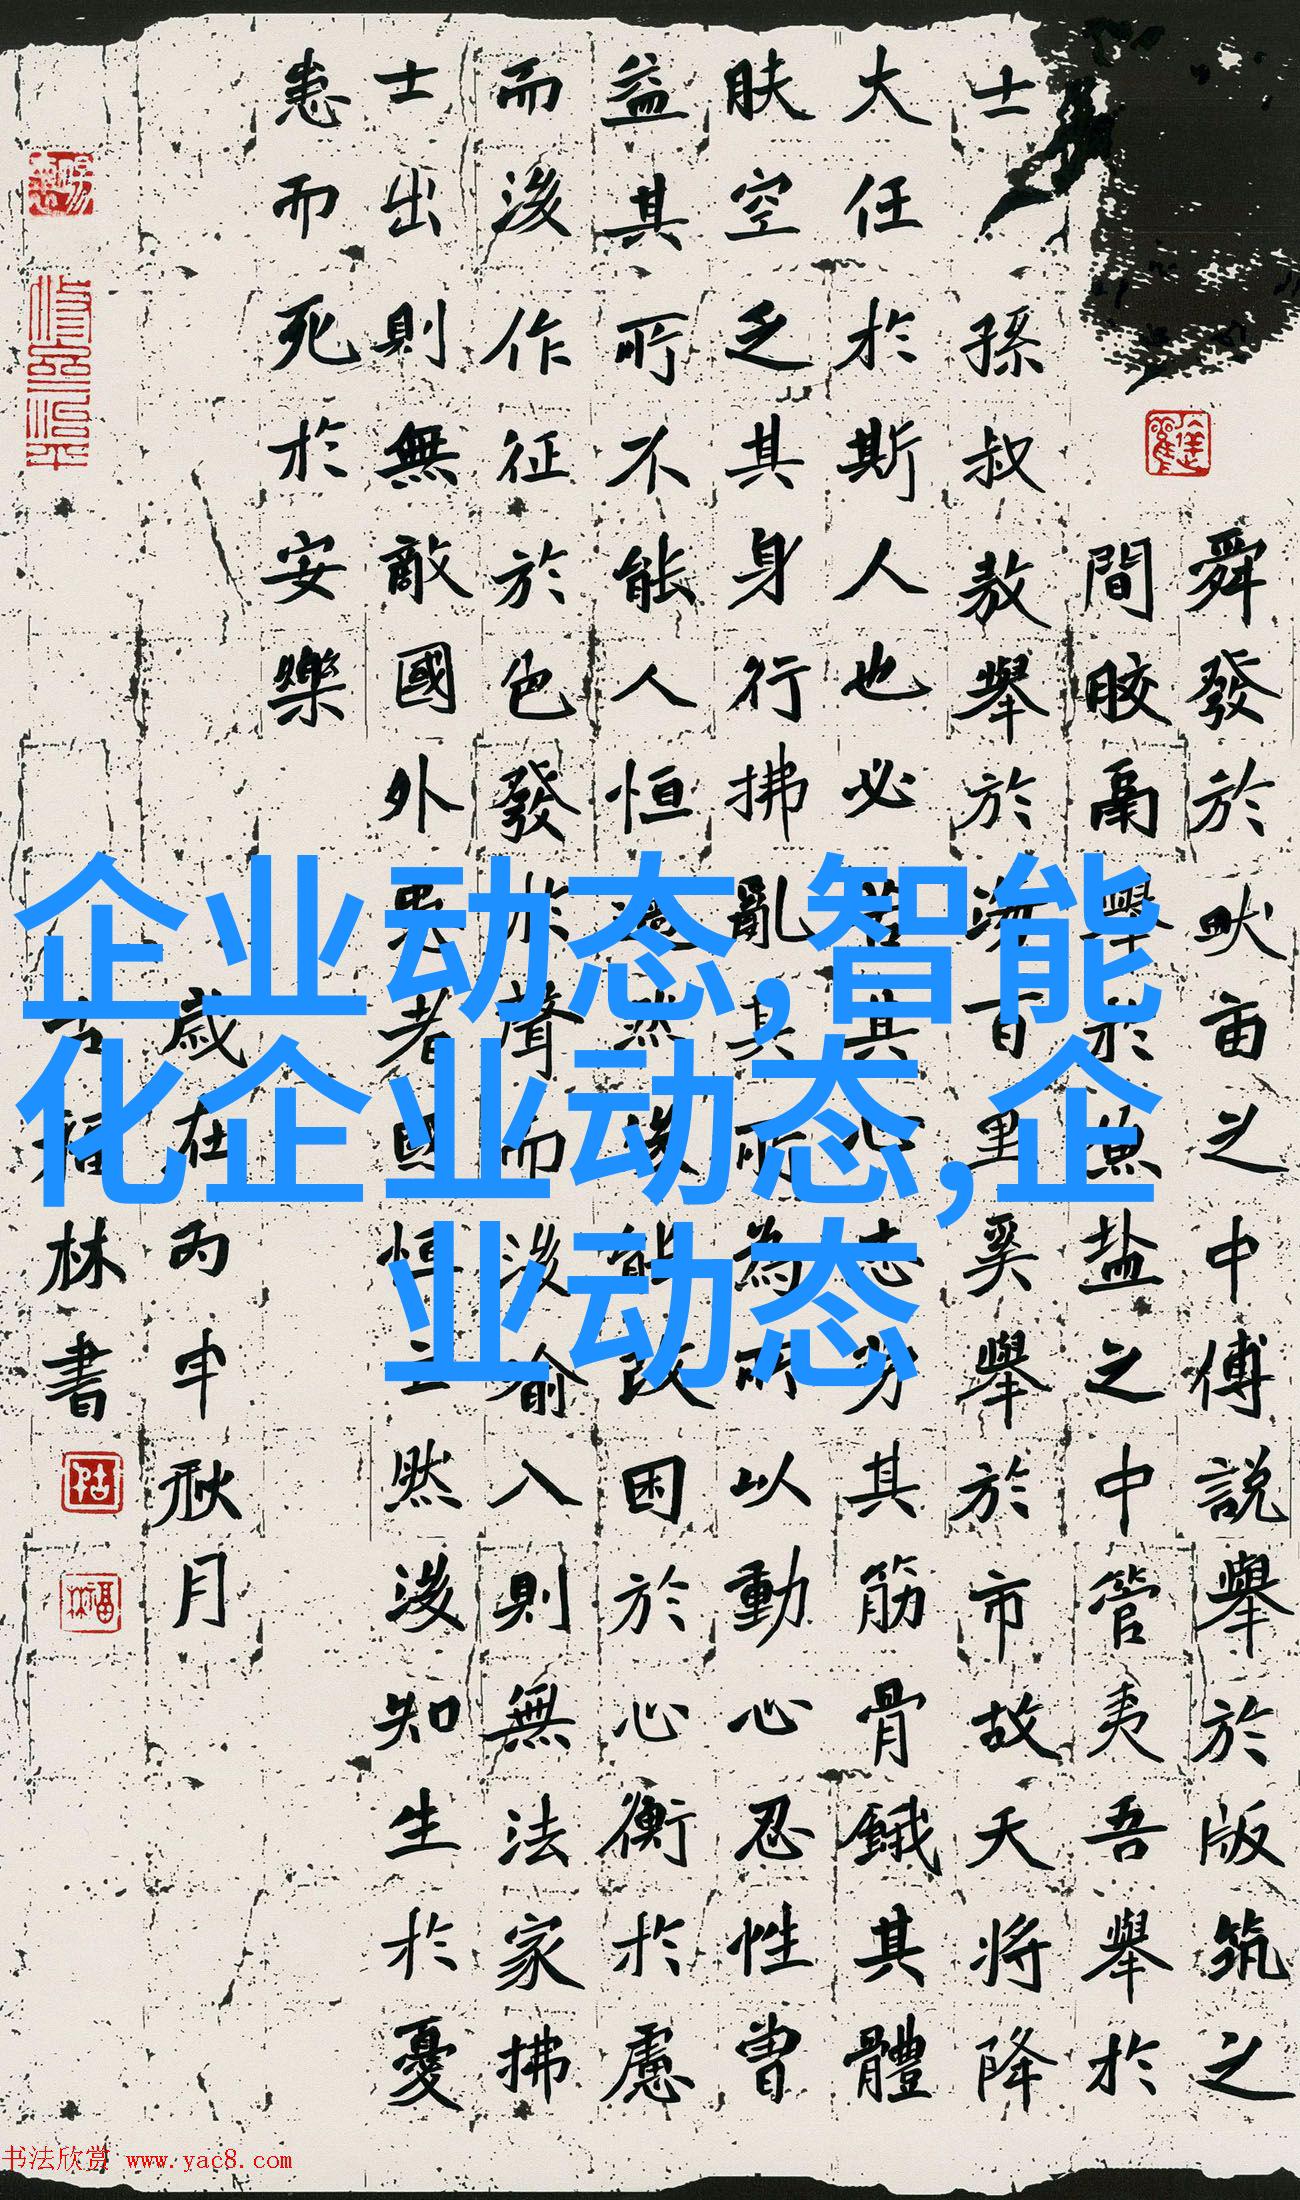 舜發於畎亩之中傅説舉於版筑之
間膠鬲舉於魚盐之中管夷吾舉於
士孫叔敖舉於海百里奚舉於市故天將降
大任於斯人也必苦其心志劳其筋骨餓其體
肤空乏其身行拂亂其所為所以動心忍性曾
益其所不能人恒過然後能改困於心衡於慮
而後作征於色發於聲而後喻入則無法家拂
士出則無敵國外患者國恒亡然後知生於憂
患而死於安樂
歲在丙申秋月
古福林書
企业动态,智能
化企业动态,企
业动态
书法欣赏 www.yac8.com